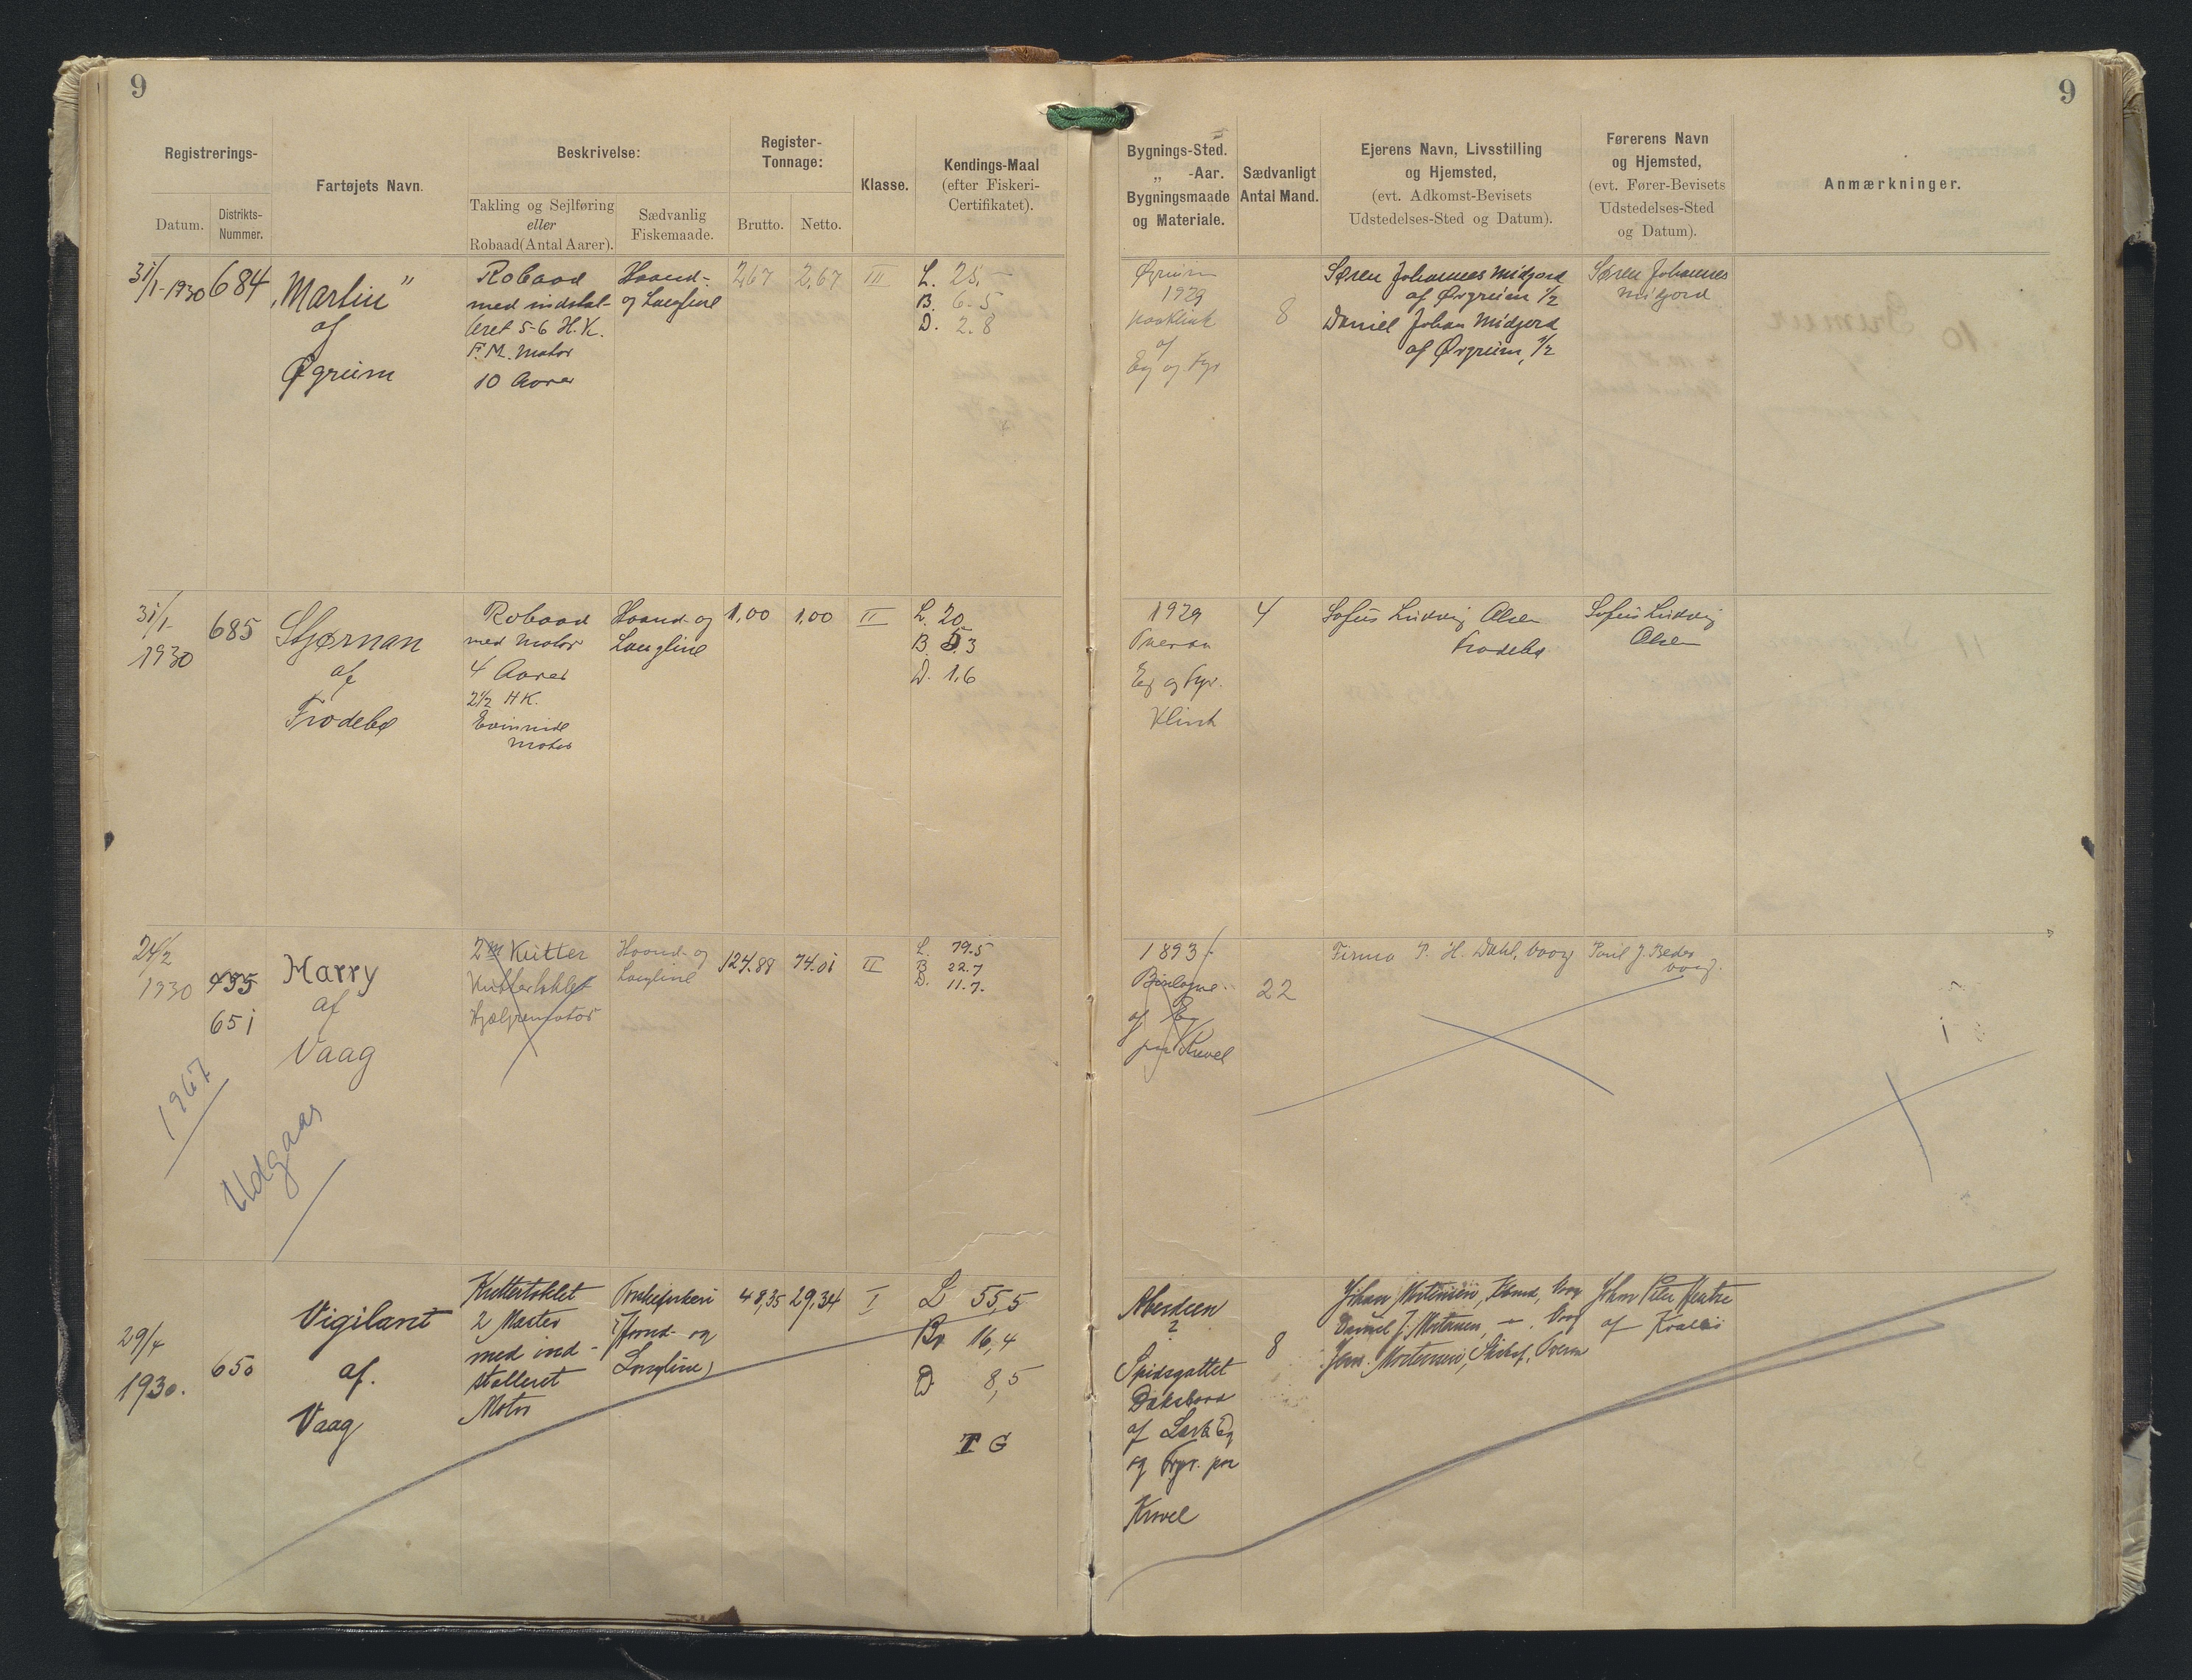 9
9
Registrerings-
Datum.
Distrikts-
Nummer.
Fartøjets Navn.
Beskrivelse:
Takling og Sejlføring
eller
Robaad(Antal Aarer).
Sædvanlig
Fiskemaade.
Register-
Tonnage:
Brutto.
Netto.
Klasse.
Kendings-Maal
(efter Fiskeri-
Certifikatet).
Bygnings-Sted.
„ -Aar.
Bygningsmaade
og Materiale.
Sædvanligt
Antal Mand.
Ejerens Navn, Livsstilling
og Hjemsted,
(evt. Adkomst-Bevisets
Udstedelses-Sted og Datum).
Førerens Navn
og Hjemsted,
(evt. Fører-Bevisets
Udstedelses-Sted
og Datum).
Anmærkninger.
31/1-1930
684
„Martin”
af
Øgrum
Robaad
med instal-
leret 5-6 H.K.
F.M. Motor
10 Aarer
Haand-
og Langline
2,67
2,67
III
L. 25,-
B. 6-5
D. 2.8
Øgrum
1929
af
Eg og Fyr
8
Søren Johannes Midjord
af Øvgrum 1/2
Daniel Johan Midjord
af Øvgrum, 1/2
Søren Johannes
Midjord
31/1-
1930
685
Stjørnan
af
Frodebø
Robaad
med Motor
4 Aarer
2 1/2 HK.
Evinrude
Motor
Haand- og
Langline
1,00
1,00
II
L. 20
B. 5.3
D. 1.6
1929
Tveraa
Eg og Fyr.
Klink
4
Sofus Ludvig Olsen
Frodebø
Sofus Ludvig
Olsen
24/2
1930
455
651
Harry
af
Vaag
1967
Udgaar
2 m Kutter
Kuttertaklet
Hjælpemotor
Haand- og
Langline
124.88
74.01
II
L. 79.5
B. 22.7
D. 11.7.
1893
Boulogne
af Eg
paa Kravel
22
Firma P. H. Dahl, Vaag
Poul J. Beder
Vaag.
29/4
1930.
650
Vigilant
af.
Vaag
Kuttertaklet
2 Master
med ind-
stalleret
Motor
Torskefiskeri
(Haand- og
Langline)
48,35
29,34
I
L 55,5
Br 16,4
D 8,5
T G
Aberdeen
?
Spidsgattet
Dæksbaad
af Lærk Eg
og Fyr. paa
Kravel
8
Johan Mortensen, Kbmd, Vaag
Daniel J. Mortensen, — , Vaag
Jens. Mortensen, Skibsf. Tveraa
John Peter
af